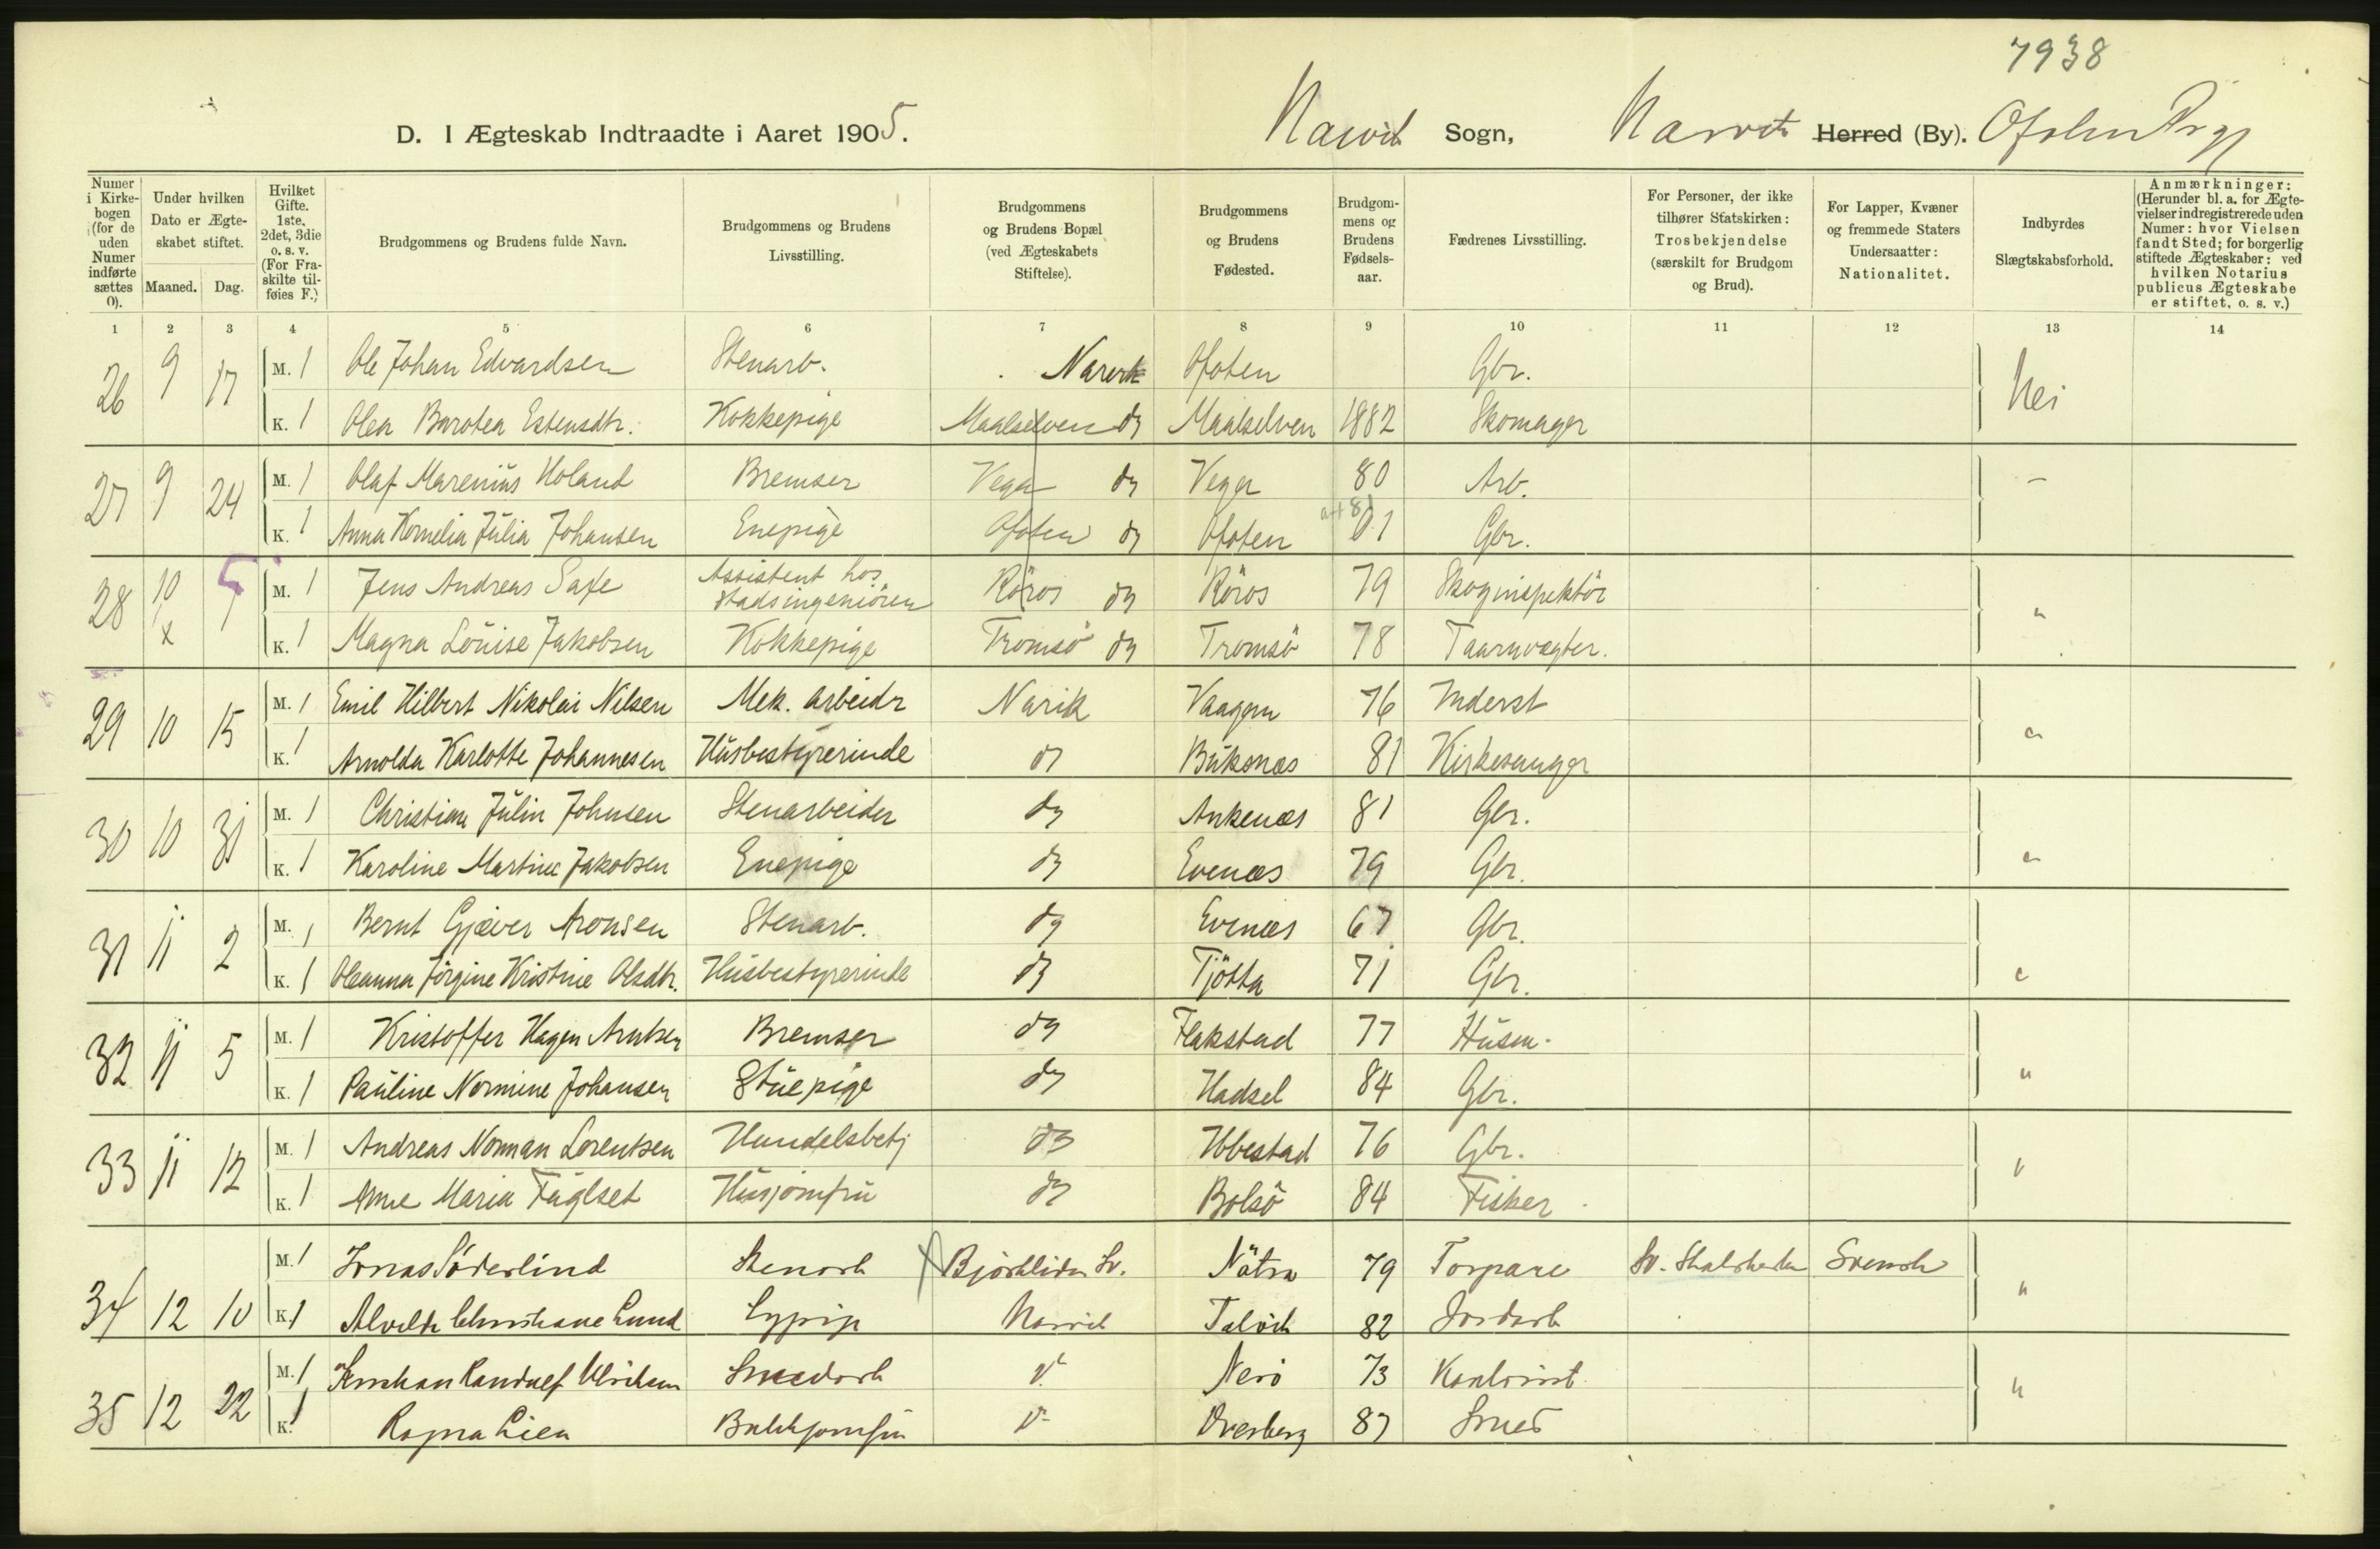 7938
D. I Ægteskab Indtraadte i Aaret 1905. Narvik Sogn, Narvik Herred (By).
Numer i Kirkebogen (for de uden Numer indførte sættes 0). Under hvilken Dato er Ægteskabet stiftet. Maaned. Dag. Hvilket Gifte. 1ste, 2det, 3die o. s. v. (For Fraskilte tilføies F.) Brudgommens og Brudens fulde Navn. Brudgommens og Brudens Livsstilling. Brudgommens og Brudens Bopæl (ved Ægteskabets Stiftelse). Brudgommens og Brudens Fødested. Brudgommens og Brudens Fødselsaar. Fædrenes Livsstilling. For Personer, der ikke tilhører Statskirken: Trosbekjendelse (særskilt for Brudgom og Brud). For Lapper, Kvæner og fremmede Staters Undersaatter: Nationalitet. Indbyrdes Slægtskabsforhold. Anmærkninger: (Herunder bl. a. for Ægtevielser indregistrerede uden Numer: hvor Vielsen fandt Sted; for borgerlig stiftede Ægteskaber: ved hvilken Notarius publicus Ægteskabe er stiftet, o. s. v.)
1 2 3 4 5 6 7 8 9 10 11 12 13 14
26 9 17 M. 1 Ole Johan Edvardsen Stenarb. Narvik Ofoten Gbr. Nei
K. 1 Olea Barotea Estensdtr. Kokkepige Maalselven dg Maalselven 1882 Skomager
27 9 24 M. 1 Olaf Marenius Holand Bremser Vega dg Vega 80 Arb. -
K. 1 Anna Kornelia Julia Johansen Enepige Ofoten dg Ofoten 81 Gbr.
28 10 M. 1 Jens Andreas Saxe Assistent hos Stadsingeniören Röros dg Röros 79 Skoginspektör "
K. 1 Magna Louise Jakobsen Kokkepige Tromsö dg Tromsö 78 Taarnvagter.
29 10 15 M. 1 Emil Hilbert Nikolai Nilsen Mek. arbeidr Narik Vaagan 76 Inderst "
K. 1 Arnolda Karlotte Johannesen Husbestyrerinde dg Buksnæs 81 Kirkesanger
30 10 31 M. 1 Christian Julin Johnsen Stenarbeider dg Ankenæs 81 Gbr. "
K. 1 Karoline Martine Jakobsen Enepige dg Evenæs 79 Gbr.
31 11 2 M. 1 Bernt Gjæver Aronsen Stenarb. dg Evenæs 67 Gbr. "
K. 1 Oleanna Jörgine Kristine Olsdtr. Husbestyrerinde dg Tjötta 71 Gbr.
32 11 5 M. 1 Kristoffer Hagen Arntsen Bremser dg Flakstad 77 Husm. "
K. 1 Pauline Normine Johansen Stuepige dg Hadsel 84 Gbr.
33 11 12 M. 1 Andreas Norman Lorentsen Handelsbetj dg Ibbestad 76 Gbr. "
K. 1 Anne Maria Fuglset Husjomfru dg Bolsö 84 Fisker
34 12 10 M. 1 Jonas Söderlind Stenarb Björkliden Sv. Nätra 79 Torpare Sv. Svensk "
K. 1 Alvilde Christiane Lund Narvik Talvik 82 Jordarb
35 12 22 M. 1 Randulf Ulriksen Smedarb d. 73 "
K. 1 Ragna Lien d. 87 Smed